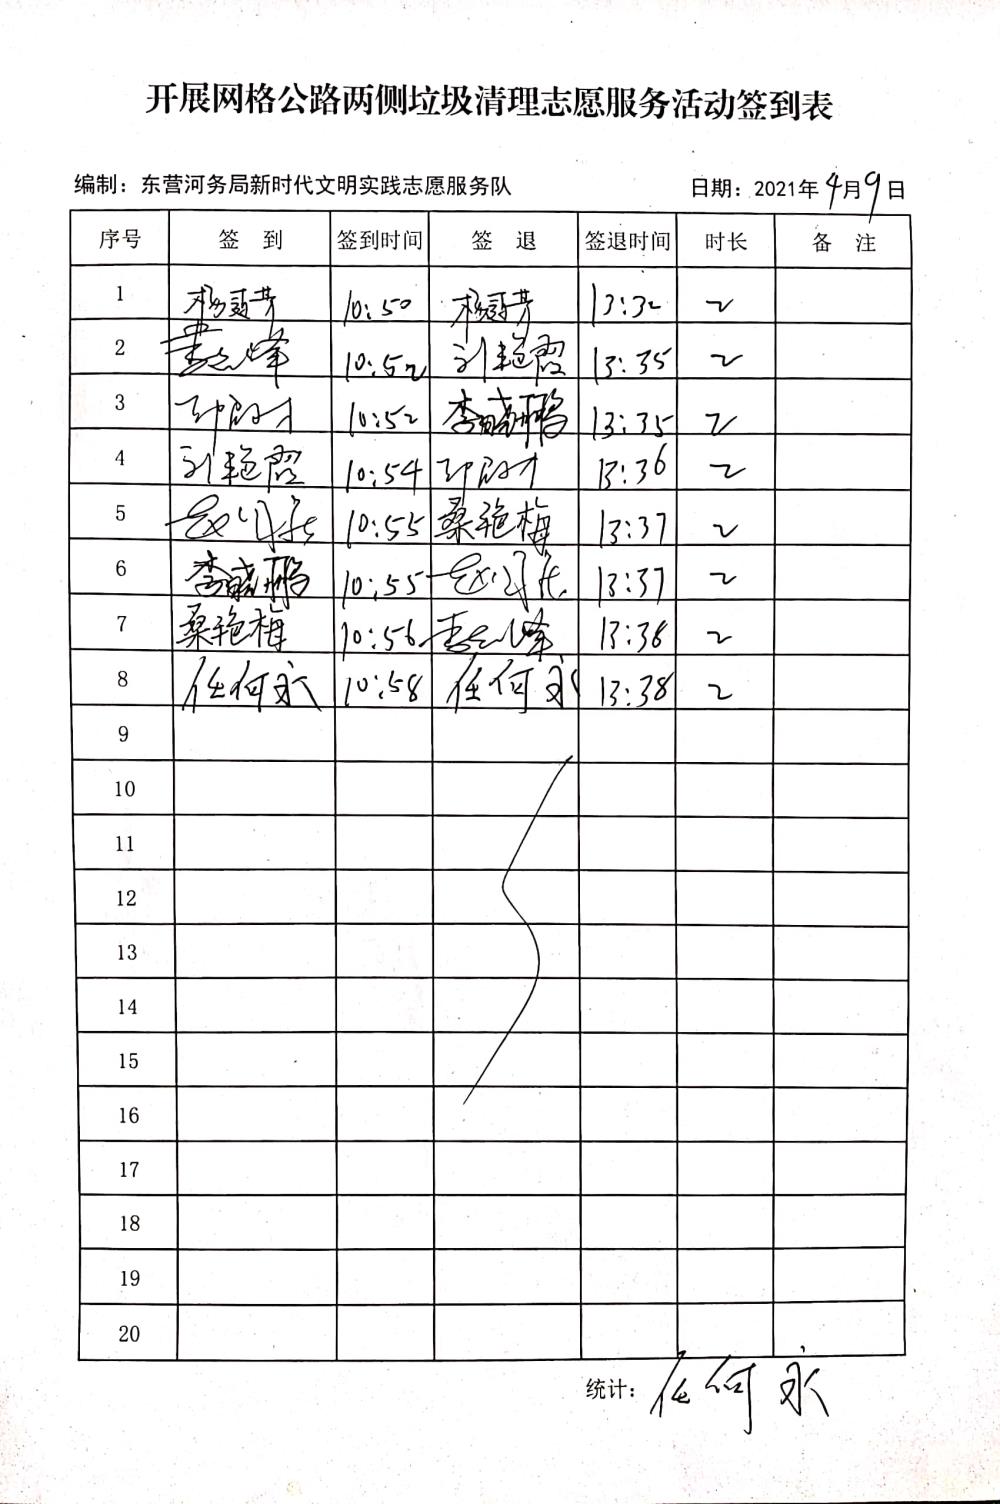 开展网格公路两侧垃圾清理志愿服务活动签到表
编制：东营河务局新时代文明实践志愿服务队 日期：2021年4月9日
序号 签到 签到时间 签退 签退时间 时长 备注
1 10:50 13:32 2
2 10:52 刘艳霞 13:35 2
3 10:52 李晓鹏 13:35 2
4 刘艳霞 10:54 13:36 2
5 10:55 桑艳梅 13:37 2
6 李晓鹏 10:55 13:37 2
7 桑艳梅 10:56 13:38 2
8 任何永 10:58 任何永 13:38 2
9
10
11
12
13
14
15
16
17
18
19
20
统计：任何永